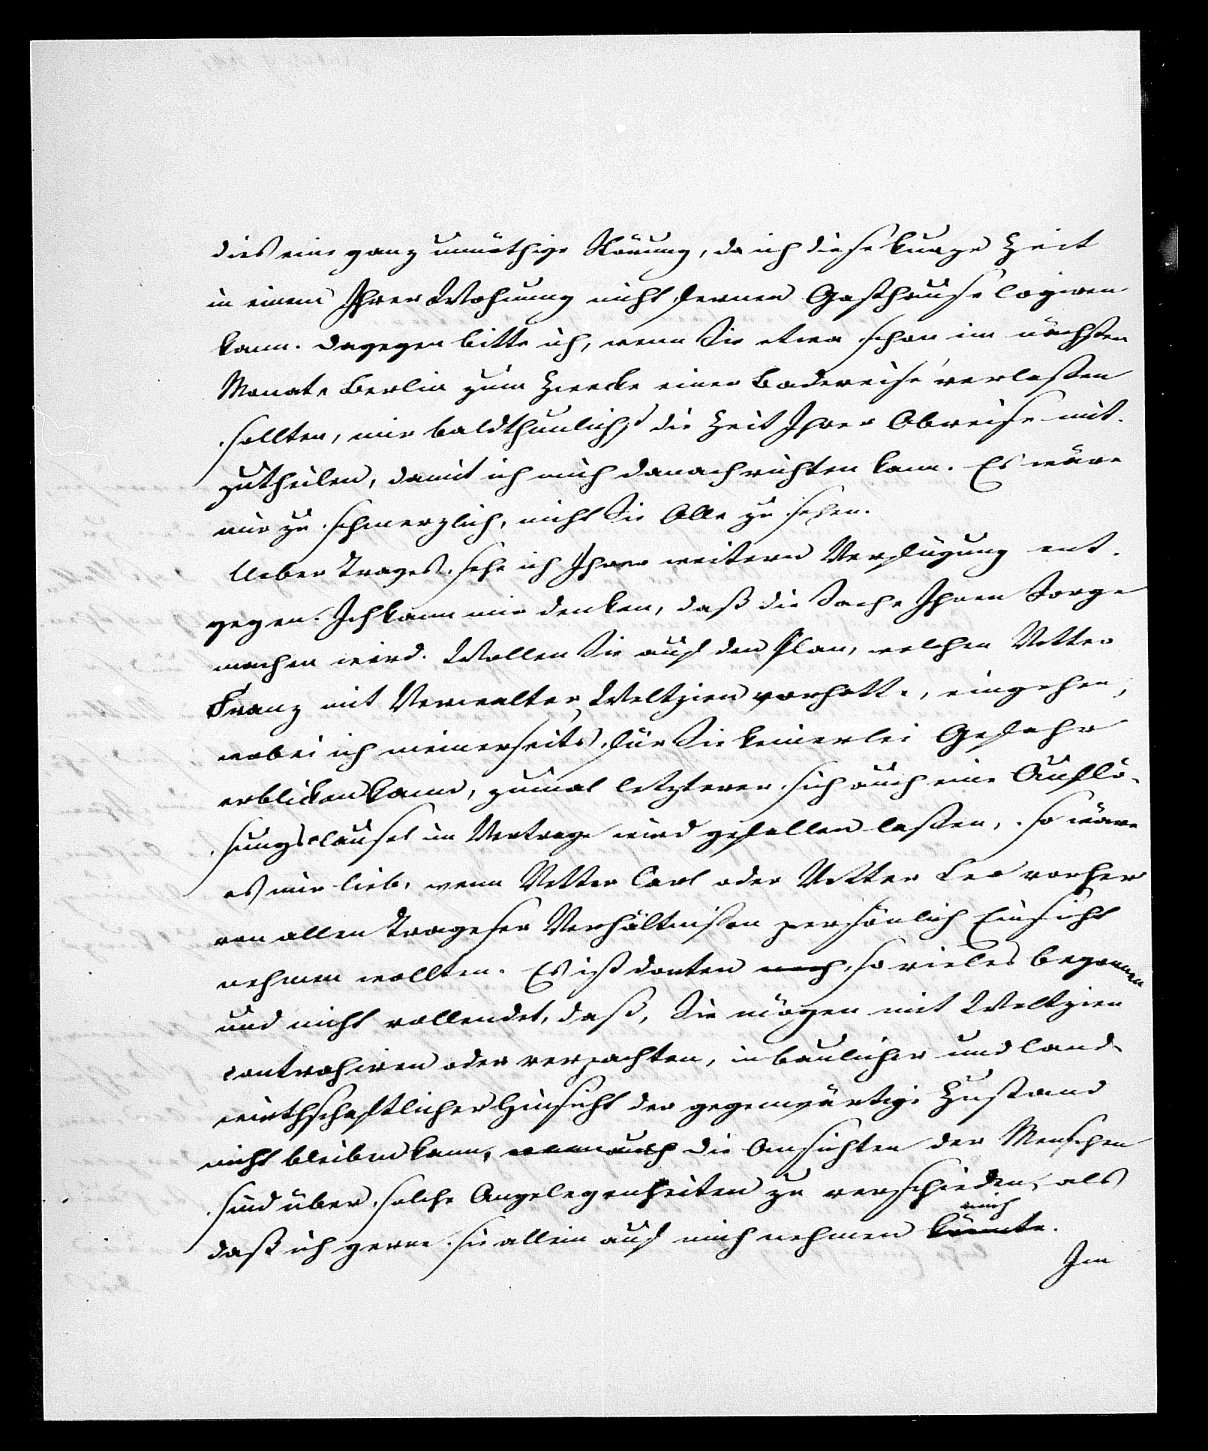 dies eine ganz unnöthige Störung, da ich diese kurze Zeit
in einem Ihrer Wohnung nicht fernen Gasthause logiren
kann. Dagegen bitte ich, wenn Sie etwa schon im nächsten
Monate Berlin zum Zwecke einer Badereise verlaßen
sollten, mir baldthunlichst die Zeit Ihrer Abreise mit-
zutheilen, damit ich mich danach richten kann. Es wäre
mir zu schmerzlich, nicht Sie Alle zu sehen.
Ueber Trages sehe ich Ihrer weitern Verfügung ent-
gegen. Ich kann mir denken, daß die Sache Ihnen Sorge
machen wird. Wollen Sie auf den Plan, welchen Vetter
Franz mit Verwalter Weltzien vorhatte, eingehen,
wobei ich meinerseits für Sie keinerlei Gefahr
erblicken kann, zumal letzterer sich auch eine Auflö-
sungsclausel im Vertrage wird gefallen laßen, so wäre
es mir lieb, wenn Vetter Carl oder Vetter Leo vorher
von allen Trageser Verhältnißen persönlich Einsicht
nehmen wollten. Es ist dorten noch so vieles begonnen
und nicht vollendet, daß, Sie mögen mit Weltzien
contrahiren oder verpachten, in baulicher und land-
wirthschaftlicher Hinsicht der gegenwärtige Zustand
nicht bleiben kann, die Ansichten der Menschen
sind über solche Angelegenheiten zu verschieden, als
daß ich gerne sie allein auf mich nehmen könnte.
Im